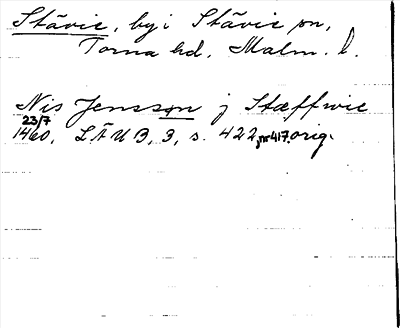 Stävie, by i Stävie sn,
Torna hd, Malm. l.
Nis Jensson j Stæffwie
23/7
1460, LÄUB, 3, s. 422, nr 417. orig.